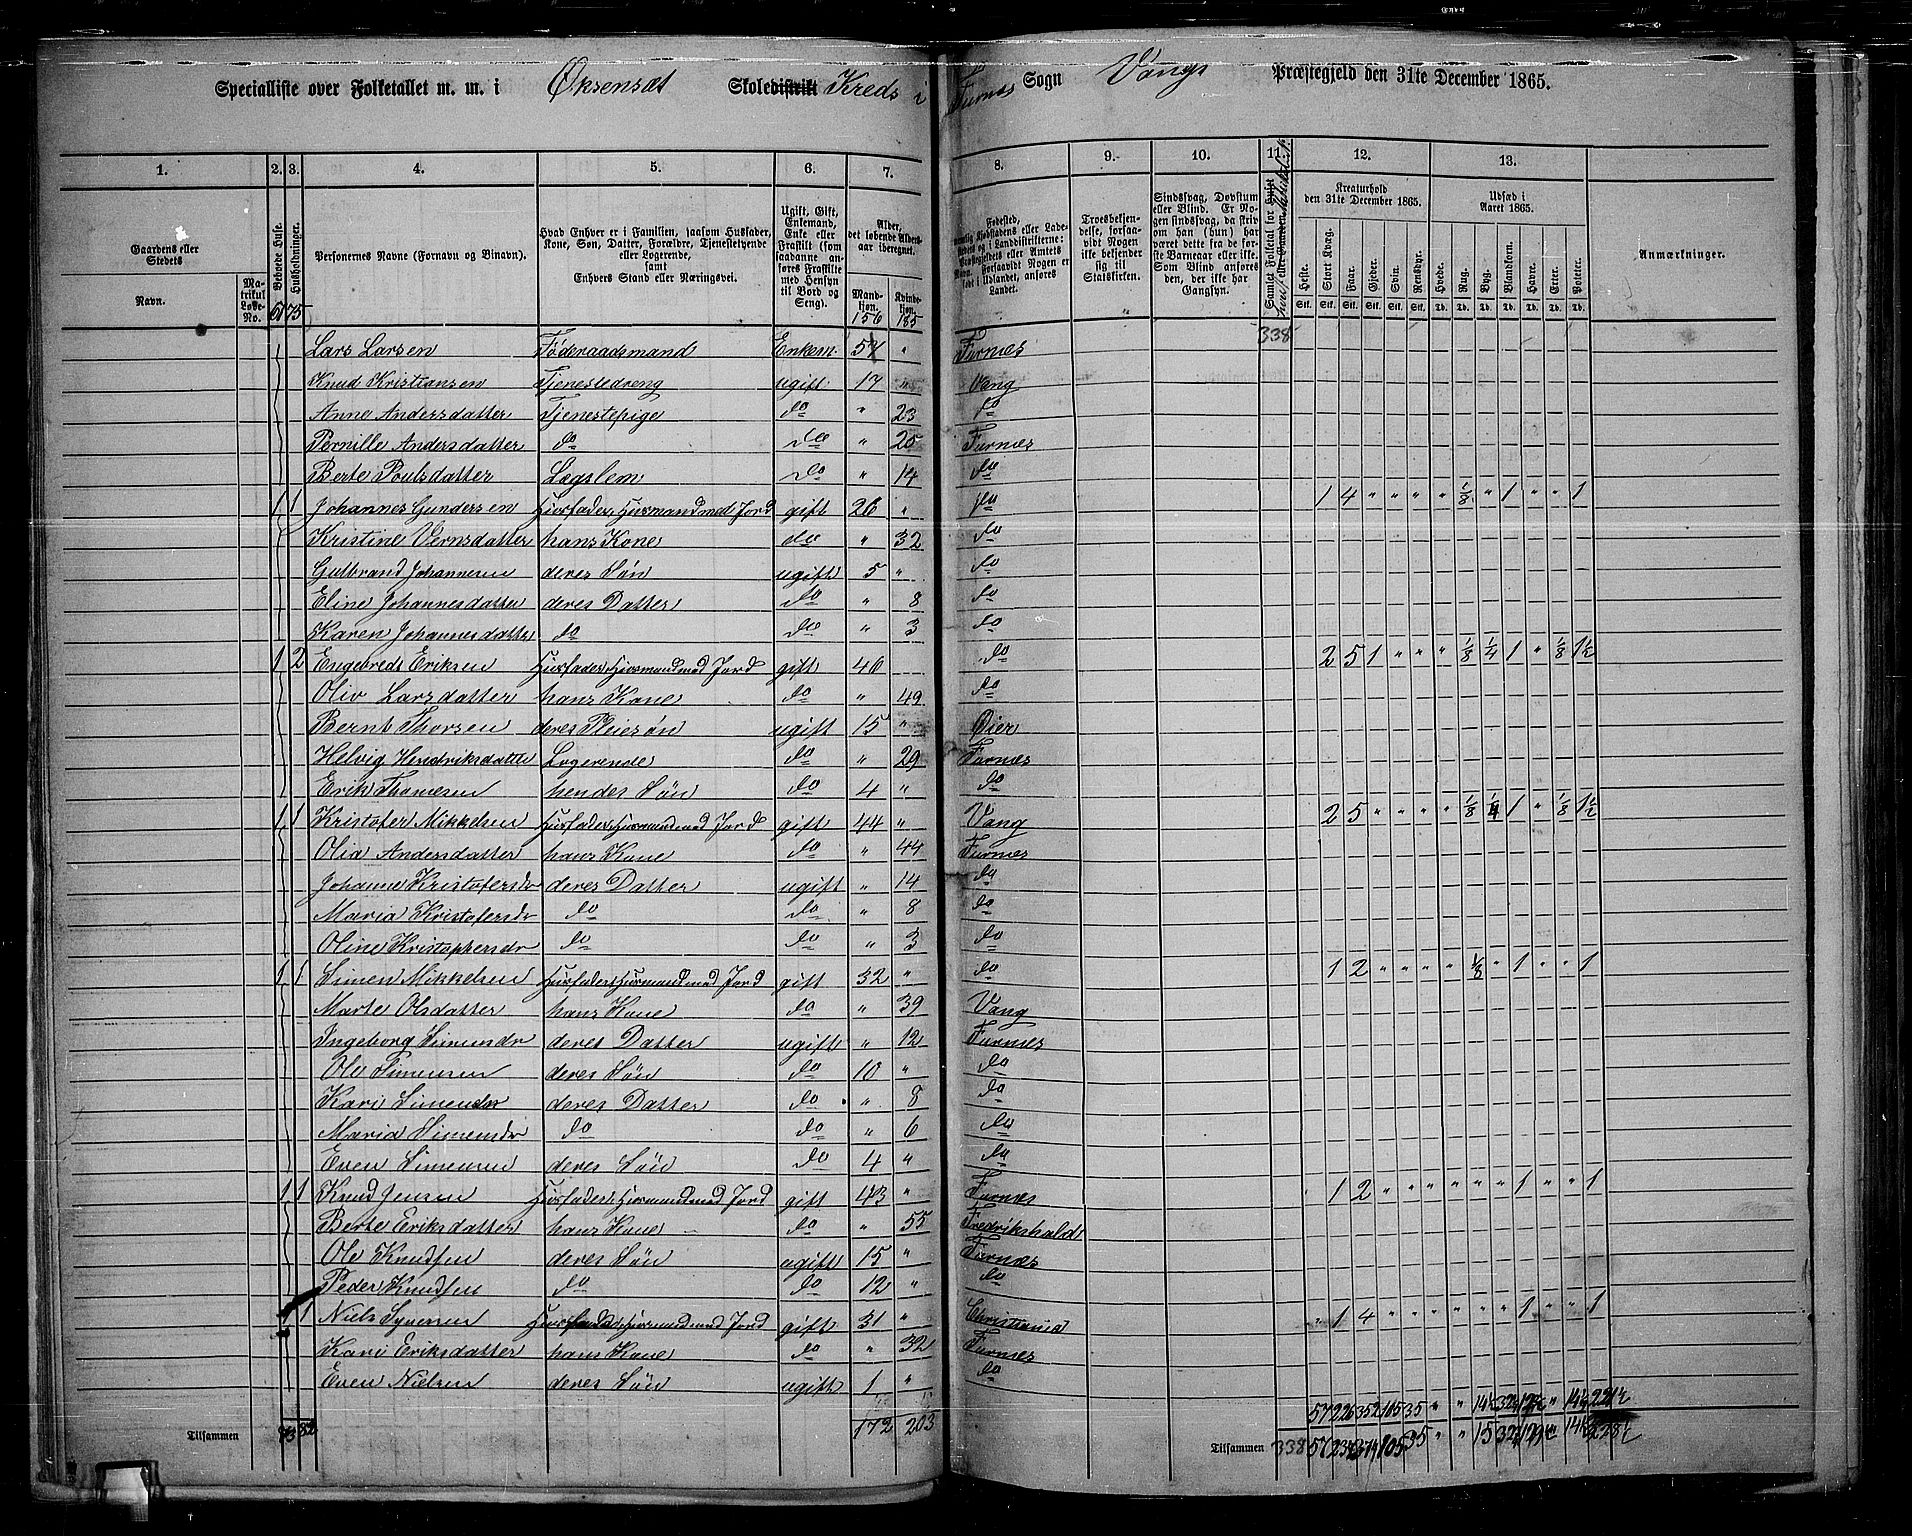 Specialliste over Folketallet m. m. i Øksensæt Skoledistrikt Kreds i Furnæs Sogn Vangs Præstegjeld den 31te December 1865.
1. 2. 3. 4. 5. 6. 7. 8. 9. 10. 11. 12. 13.
Gaardens eller Stedets Navn. Matrikul Løbe-No. Beboede Huse. Husholdninger. Personernes Navne (Fornavn og Binavn). Hvad Enhver er i Familien, saasom Husfader, Kone, Søn, Datter, Forældre, Tjenestetyende eller Logerende, samt Enhvers Stand eller Næringsvei. Ugift, Gift, Enkemand, Enke eller Fraskilt (som saadanne anføres Fraskilte med Hensyn til Bord og Seng). Alder, det løbende Aldersaar iberegnet. Mandkjøn. Kvindekjøn. Troesbekjendelse, forsaavidt Nogen ikke bekjender sig til Statskirken. Sindssvag, Døvstum eller Blind. Er Nogen sindssvag, da skriv om han (hun) har været dette fra de første Barneaar eller ikke. Som Blind anføres den, der ikke har Gangsyn. Kreaturhold den 31te December 1865. Heste. Stort Kvæg. Faar. Gjeder. Svin. Rensdyr. Udsæd i Aaret 1865. Hvede. Rug. Byg. Blandkorn. Havre. Erter. Poteter. Anmærkninger.
156 185 338
Lars Larsen Føderaadsmand Enkem. 57 " Furnæs
Knud Kristiansen Tjenestedreng ugift 17 " Vang
Anne Andersdatter Tjenestepige do " 23 do
Pernille Andersdatter do do " 25 Furnæs
Berte Poulsdatter Lægslem do " 14 do
1 1 Johannes Gundersen Husfader, Husmand med Jord gift 26 " do 1 4 " " " " " 1/8 " 1 " " 1
Kristine Vernsdatter hans Kone do " 32 do
Gulbrand Johannesen deres Søn ugift 5 " do
Eline Johannesdatter deres Datter do " 8 do
Karen Johannesdatter do do " 3 do
1 2 Engebredt Eriksen Husfader, Husmand med Jord gift 46 do 2 5 1 " " " " 1/8 1/4 1 " 1/8 1 1/2
Oliv Larsdatter hans Kone do " 49 do
Bernt Thorsen deres Pleiesøn ugift 15 " Øier
Helvig Hendriksdatter Logerende do " 29 Furnæs
Erik Thomesen hendes Søn do 4 " do
1 1 Kristofer Mikkelsen Husfader, Husmand med Jord gift 44 " Vang 2 5 " " " " " 1/8 1/4 1 " 1/8 1 1/2
Olia Andersdatter hans Kone do " 44 Furnæs
Johanne Kristofersdr deres Datter ugift " 14 do
Maria Kristofersdr do do " 8 do
Oline Kristophersdr do do " 3 do
1 1 Simen Mikkelsen Husfader, Husmand med Jord gift 32 " do 1 2 " " " " " 1/8 " 1 " " 1
Marte Olsdatter hans Kone do " 39 Vang
Ingeborg Simensdr deres Datter ugift " 12 Furnæs
Ole Simensen deres Søn do 10 " do
Kari Simensdr deres Datter do " 8 do
Maria Simensdr do do " 6 do
Even Simensen deres Søn do 4 " do
1 1 Knud Jensen Husfader, Husmand med Jord gift 43 " Furnæs " 1 2 " " " " " " 1 " " 1
Berte Eriksdatter hans Kone do " 55 Fredrikshald
Ole Knudsen deres Søn ugift 15 " Furnæs
Peder Knudsen do do 12 " do
1 1 Niels Syversen Husfader, Husmand med Jord gift 31 " Christiania " 1 4 " " " " " " 1 " " 1
Kari Eriksdatter hans Kone do " 32 Furnæs
Even Nielsen deres Søn ugift 1 " do
Tilsammen 172 203 Tilsammen 338